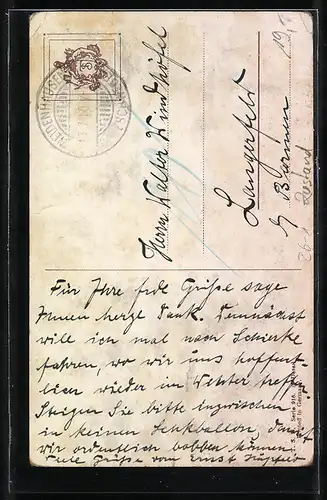 Herrn Walter Windhösel
Langerfeld
b/ Barmen
Für Ihre frdl Grüße sage
Ihnen herzl Dank. Demnächst
will ich mal nach Schierke
fahren, wo wir uns hoffent-
lich wieder im Winter treffen
Steigen Sie bitte inzwischen
in keinen Fesselballon, damit
wir ordentlich bobben können.
Viele Grüße vom Ernst